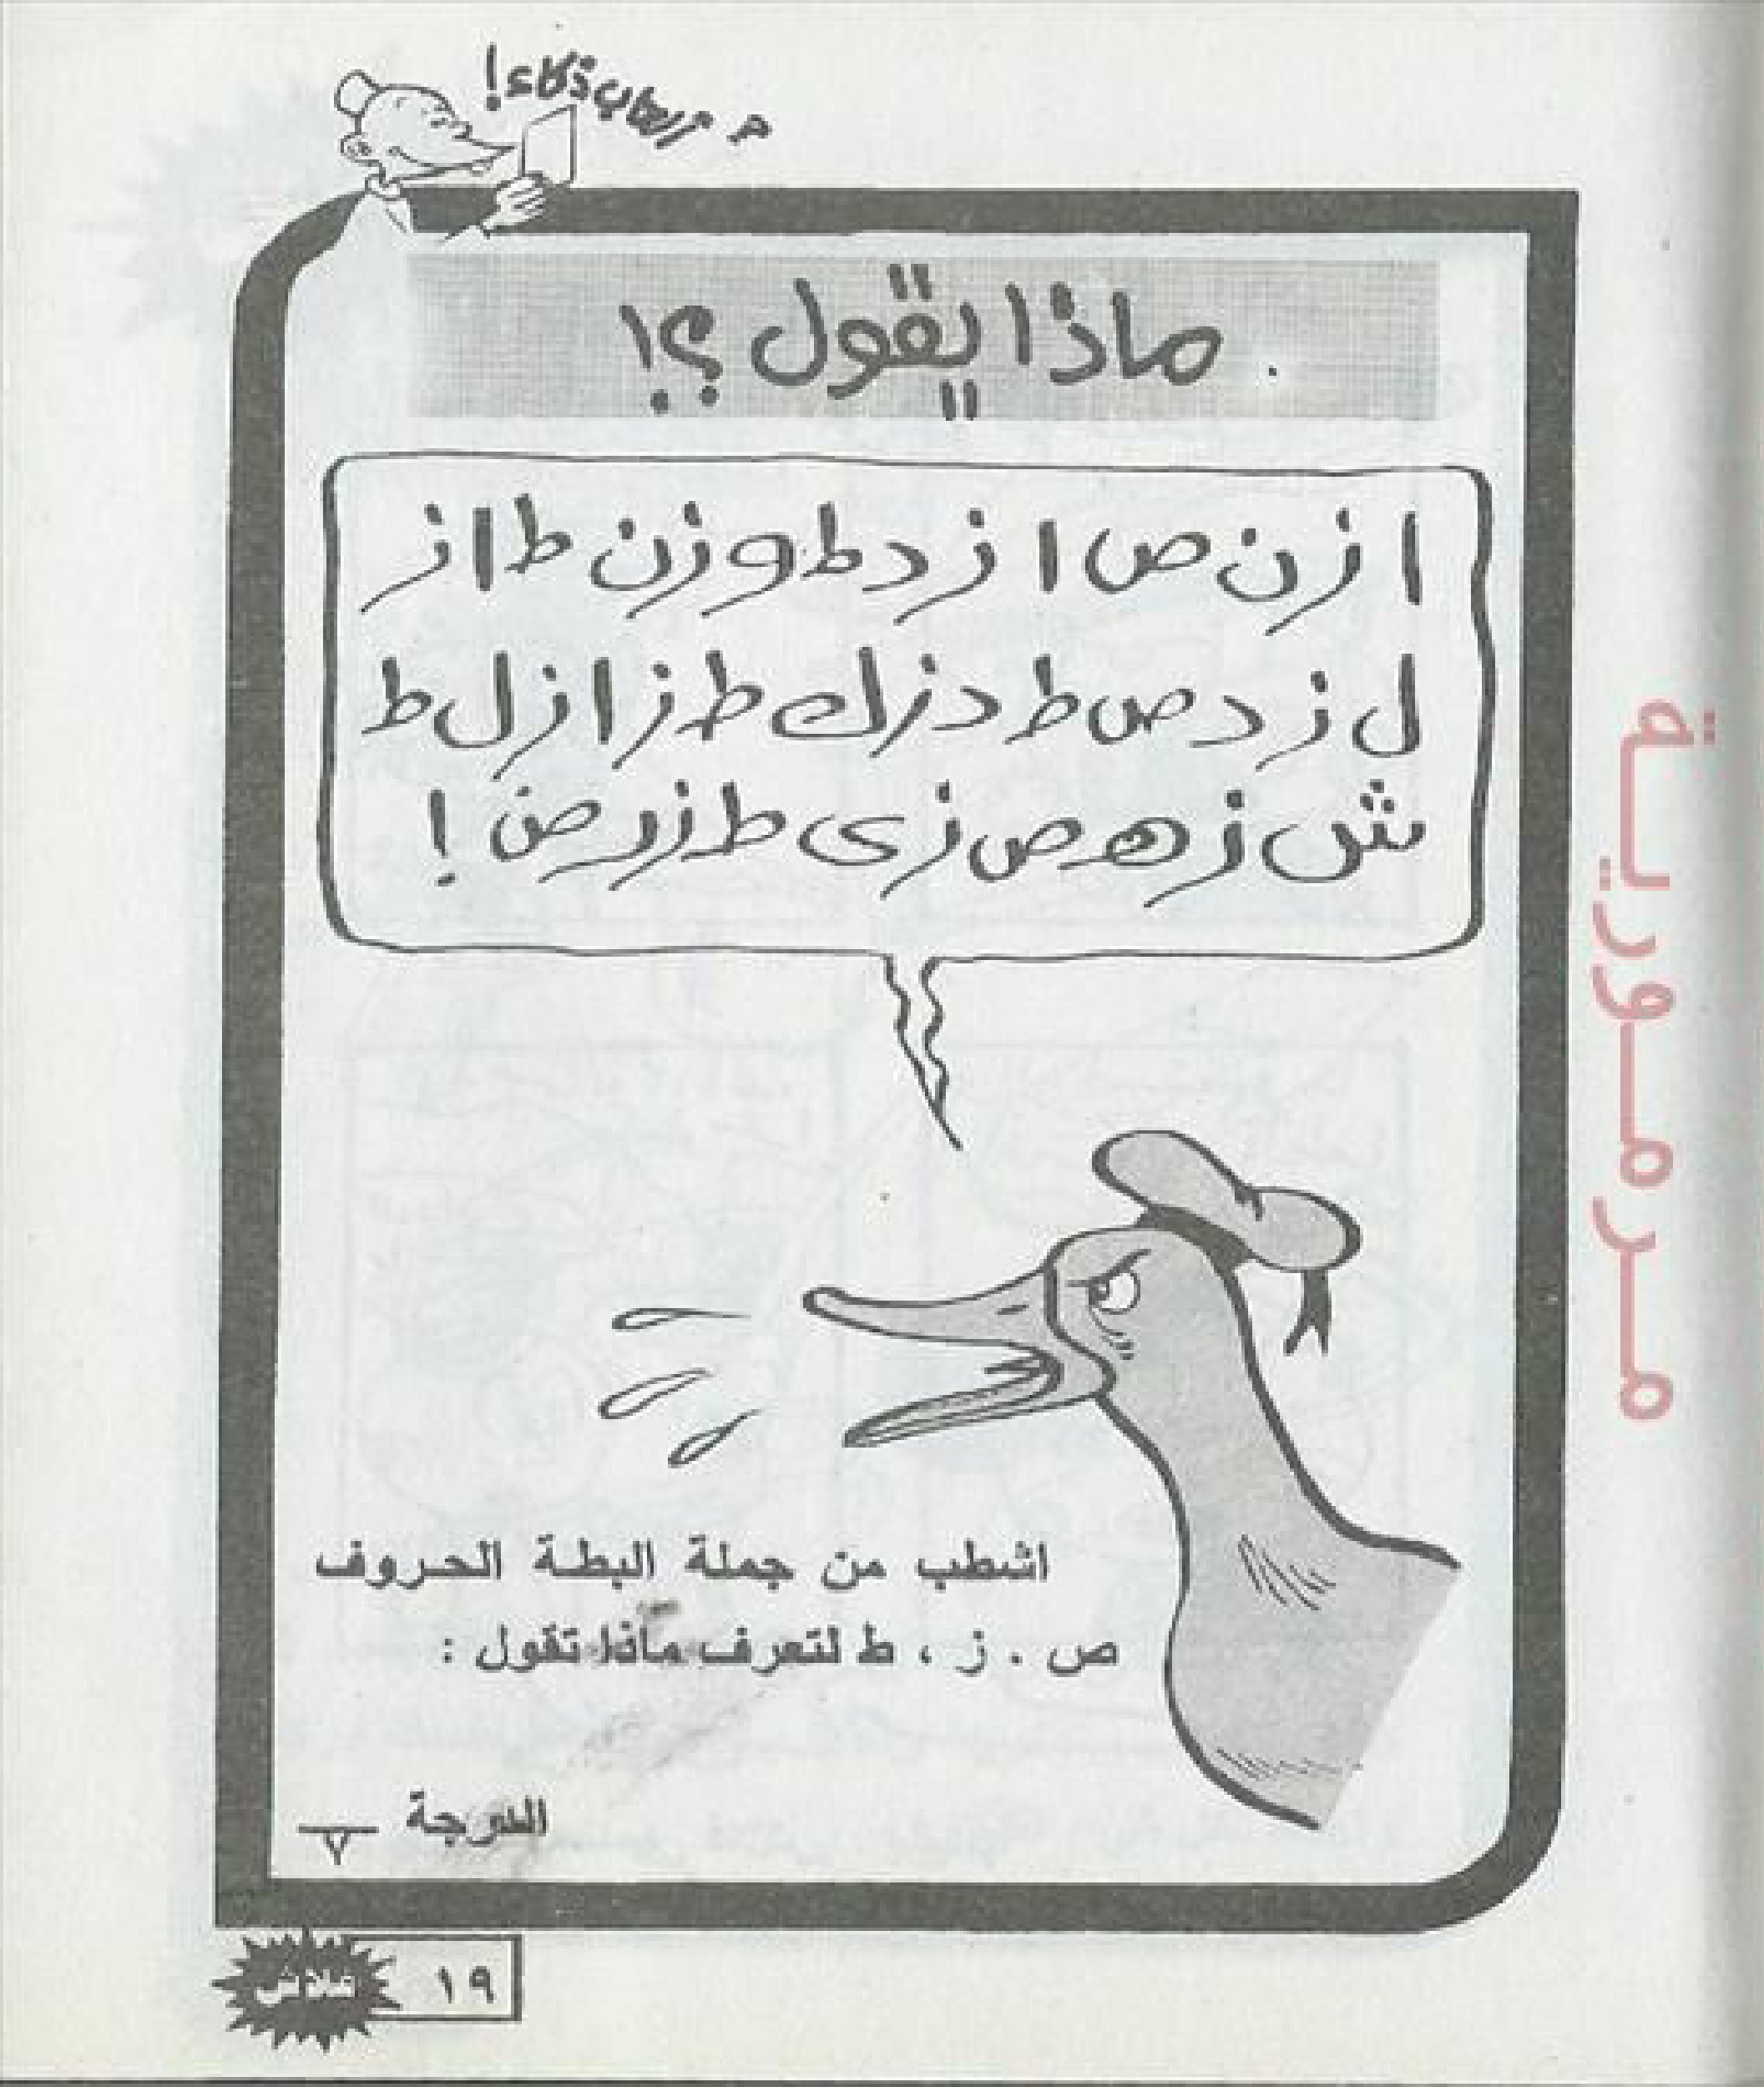 ذكاء!
ماذا يقول ؟!
ا ز ن ص ا ز د ط و ز ن ط ا ز
ل ز د ص ط د ز ك ط ز ا ز ل ط
ش ز هـ ص ز ى ط ز ر ض !
اشطب من جملة البطة الحروف
ص . ز ، ط لتعرف ماذا تقول :
الدرجة
١٩
فلاش
مرمورية